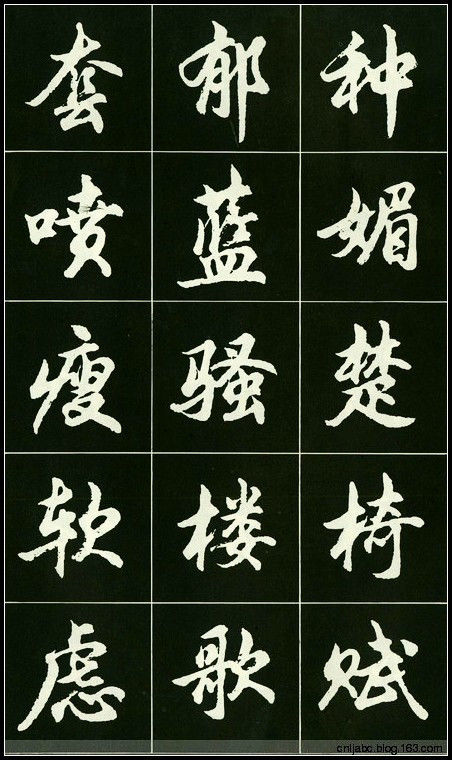 种媚楚椅赋
郁蓝骚楼歌
套喷瘦软虑
cnljabc.blog.163.com